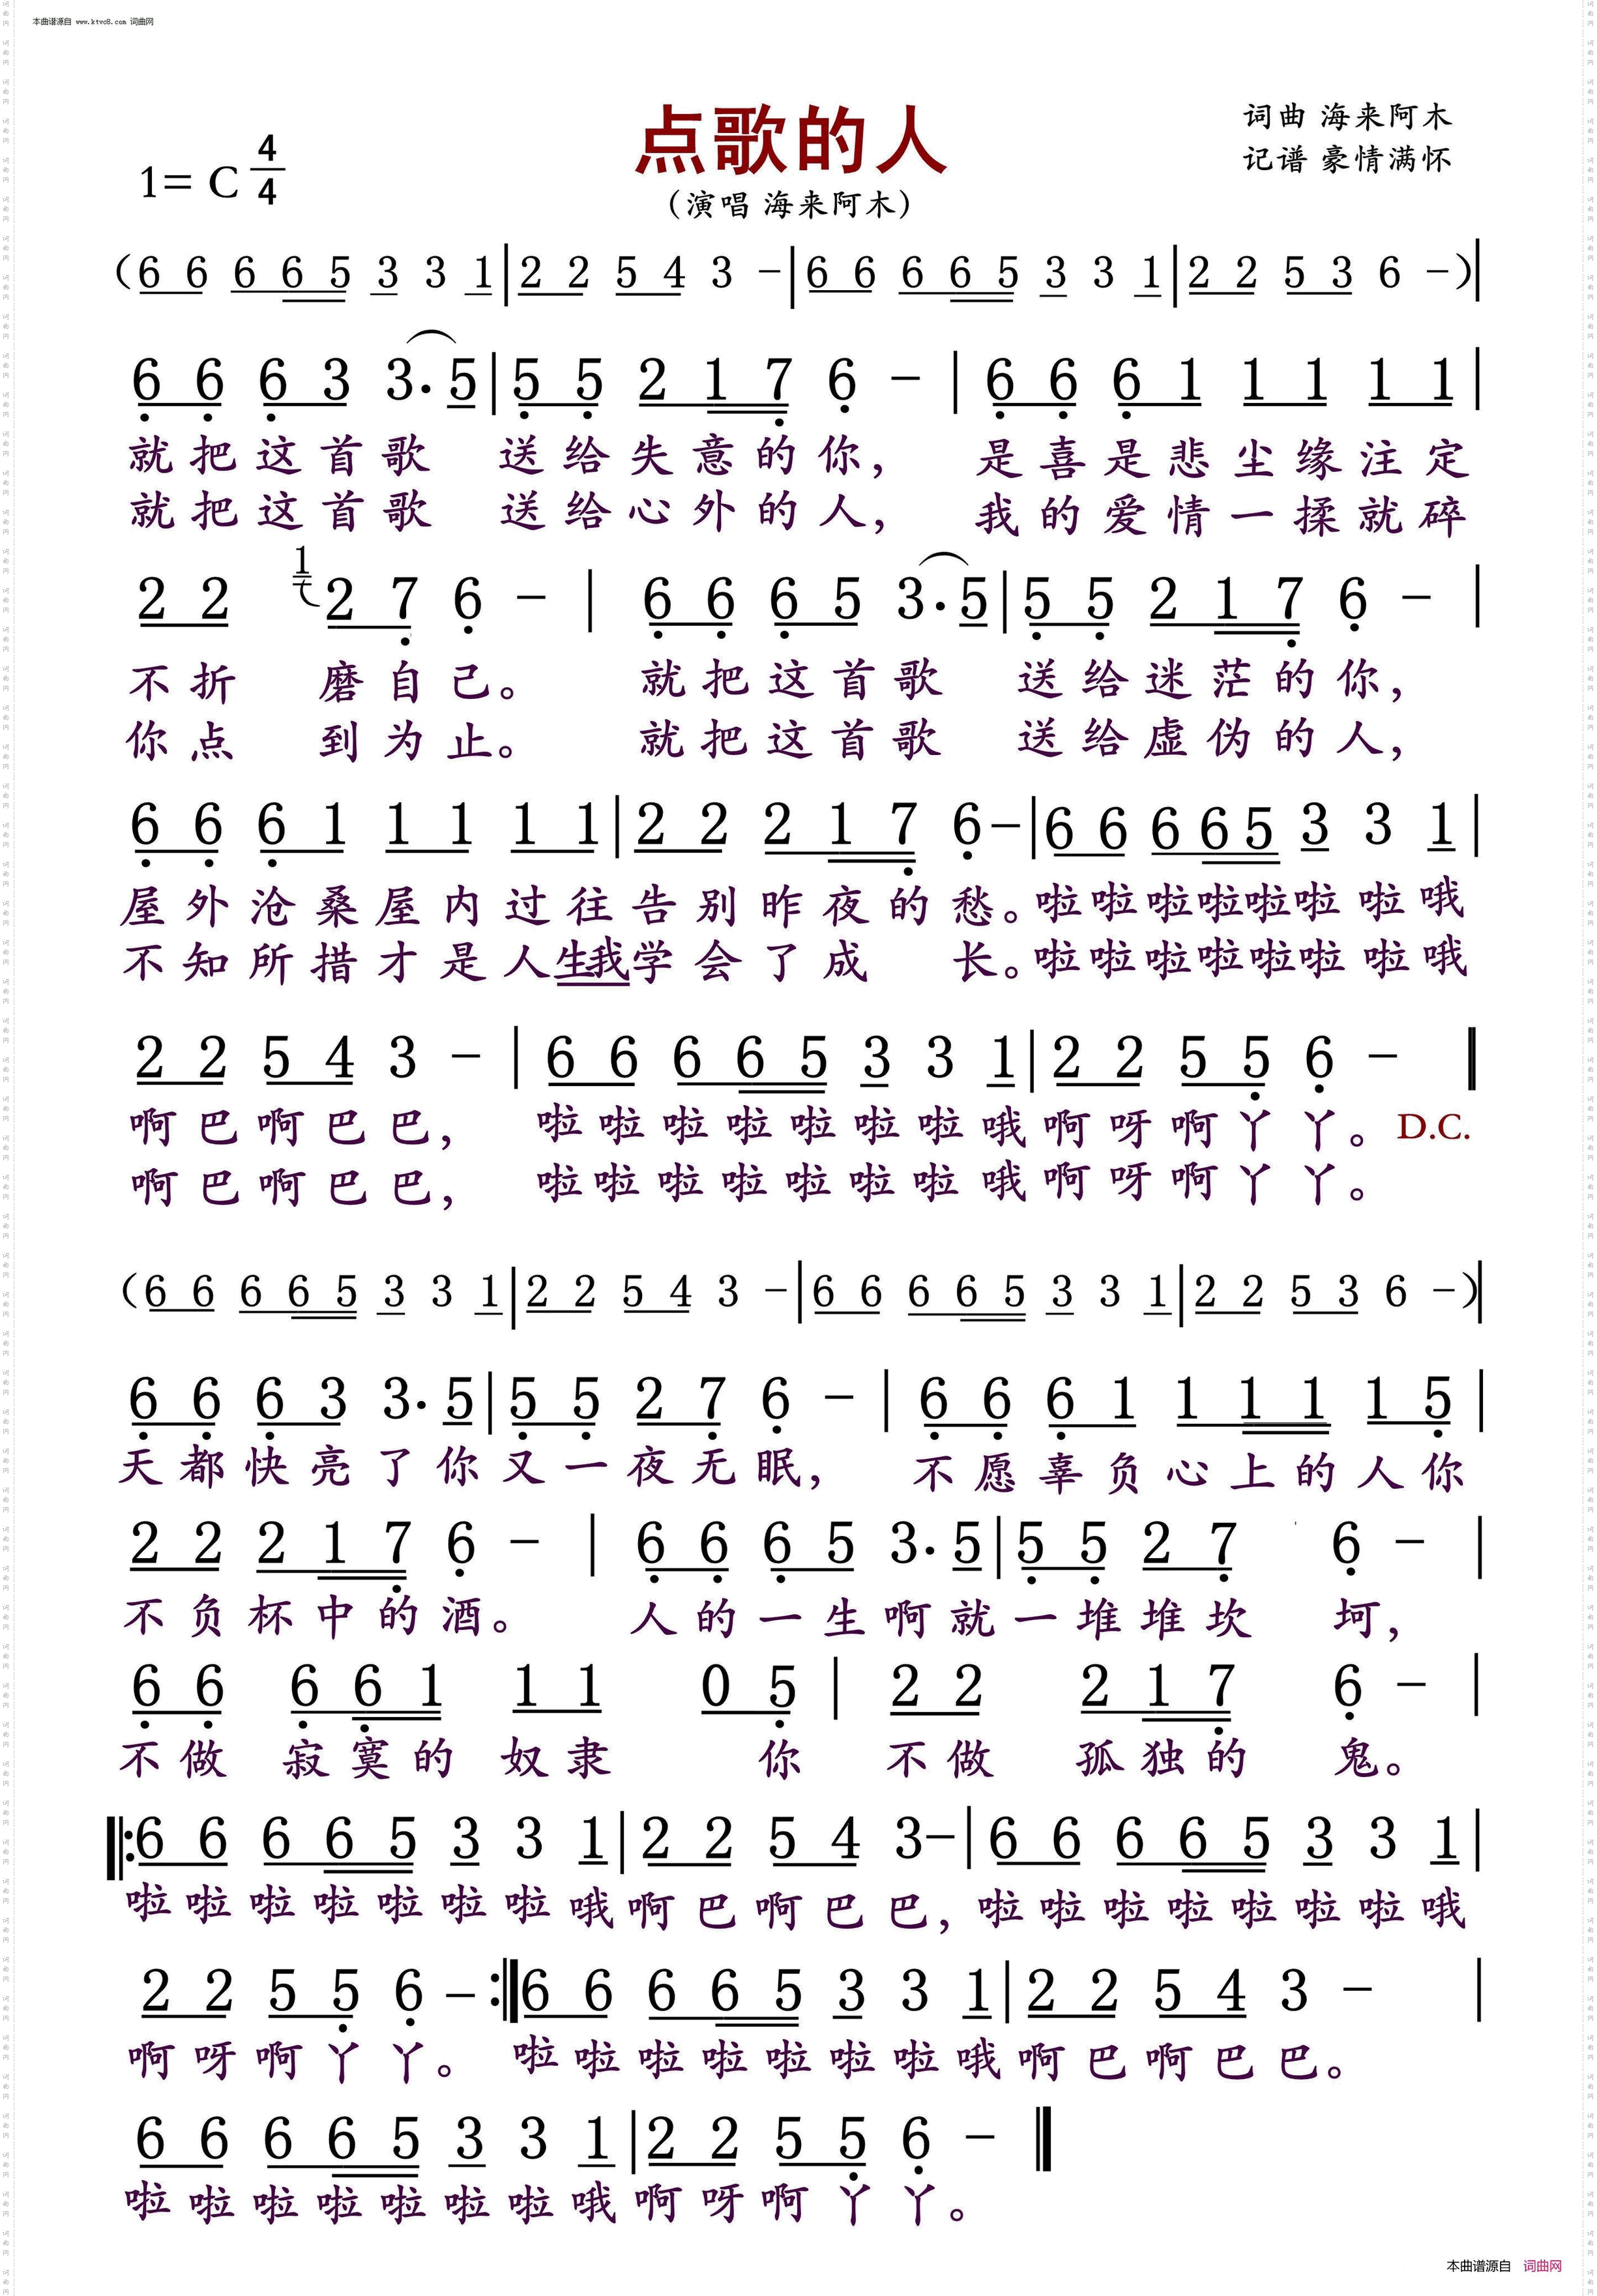 本曲谱源自 www.ktvc8.com 词曲网
点歌的人
词曲 海来阿木
记谱 豪情满怀
1= C 4/4
(演唱 海来阿木)
(6 6 6 6 5 3 3 1|2 2 5 4 3 -|6 6 6 6 5 3 3 1|2 2 5 3 6 -)|
6 6 6 3 3. 5|5 5 2 1 7 6 -|6 6 6 1 1 1 1 1|
就把这首歌 送给失意的你, 是喜是悲尘缘注定
就把这首歌 送给心外的人, 我的爱情一揉就碎
2 2 1 2 7 6 -|6 6 6 5 3. 5|5 5 2 1 7 6 -|
不折 磨自己。 就把这首歌 送给迷茫的你,
你点 到为止。 就把这首歌 送给虚伪的人,
6 6 6 1 1 1 1 1|2 2 2 1 7 6 -|6 6 6 6 5 3 3 1|
屋外沧桑屋内过往告别昨夜的愁。啦啦啦啦啦啦啦哦
不知所措才是人生我学会了成 长。啦啦啦啦啦啦啦哦
2 2 5 4 3 -|6 6 6 6 5 3 3 1|2 2 5 5 6 -‖
啊巴啊巴巴, 啦啦啦啦啦啦啦哦啊呀啊丫丫。 D.C.
啊巴啊巴巴, 啦啦啦啦啦啦啦哦啊呀啊丫丫。
(6 6 6 6 5 3 3 1|2 2 5 4 3 -|6 6 6 6 5 3 3 1|2 2 5 3 6 -)|
6 6 6 3 3. 5|5 5 2 7 6 -|6 6 6 1 1 1 1 1 5|
天都快亮了你又一夜无眠, 不愿辜负心上的人你
2 2 2 1 7 6 -|6 6 6 5 3. 5|5 5 2 7 6 -|
不负杯中的酒。 人的一生啊就一堆堆坎 坷,
6 6 6 6 1 1 1 0 5|2 2 2 1 7 6 -|
不做 寂寞的 奴隶 你 不做 孤独的 鬼。
‖:6 6 6 6 5 3 3 1|2 2 5 4 3 -|6 6 6 6 5 3 3 1|
啦啦啦啦啦啦啦哦啊巴啊巴巴, 啦啦啦啦啦啦啦哦
2 2 5 5 6 -:‖6 6 6 6 5 3 3 1|2 2 5 4 3 -|
啊呀啊丫丫。 啦啦啦啦啦啦啦哦啊巴啊巴巴。
6 6 6 6 5 3 3 1|2 2 5 5 6 -‖
啦啦啦啦啦啦啦哦啊呀啊丫丫。
本曲谱源自 词曲网